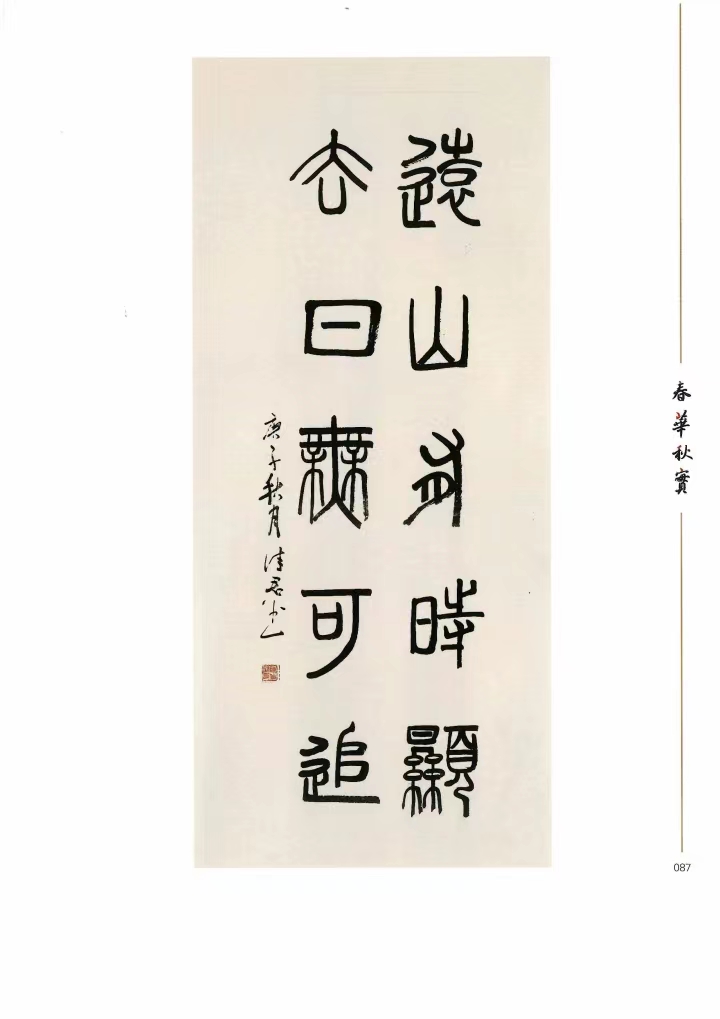 遠山有時顯
去日無可追
庚子秋月
春華秋實
087